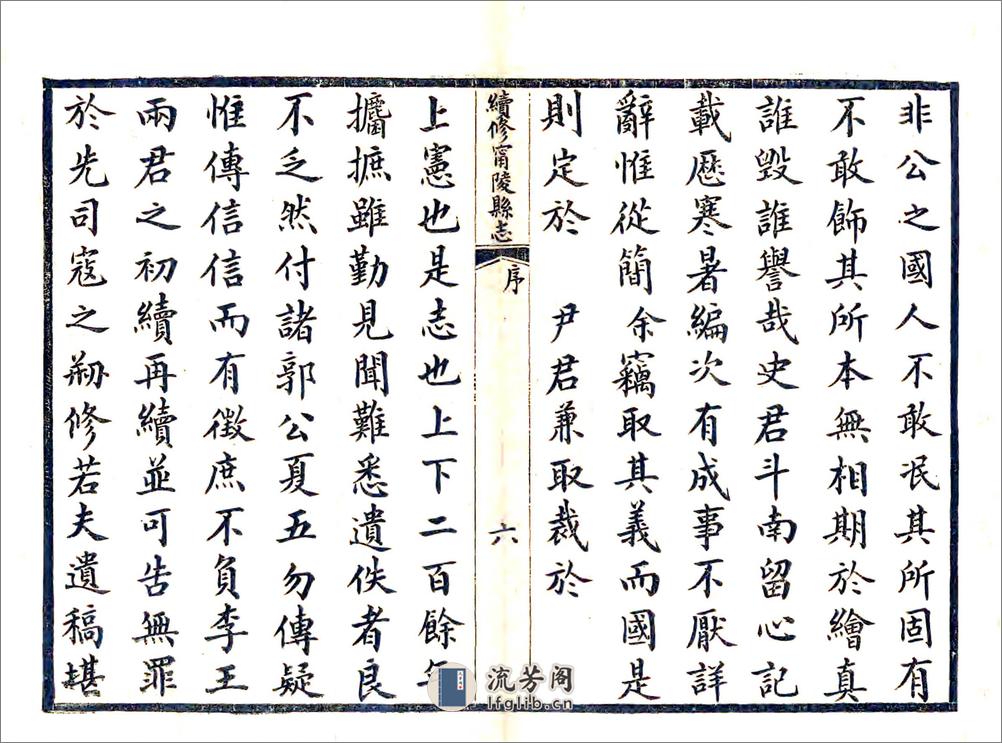 非公之國人不敢泯其所固有
不敢飾其所本無相期於繪真
誰毀誰譽哉史君斗南留心記
載歷寒暑編次有成事不厭詳
辭惟從簡余竊取其義而國是
則定於　尹君兼取裁於
續修甯陵縣志
序
六
上憲也是志也上下二百餘年
攟摭雖勤見聞難悉遺佚者良
不乏然付諸郭公夏五勿傳疑
惟傳信信而有徵庶不負李王
兩君之初續再續並可告無罪
於先司寇之剏修若夫遺稿堪
流芳阁
lfglib.cn